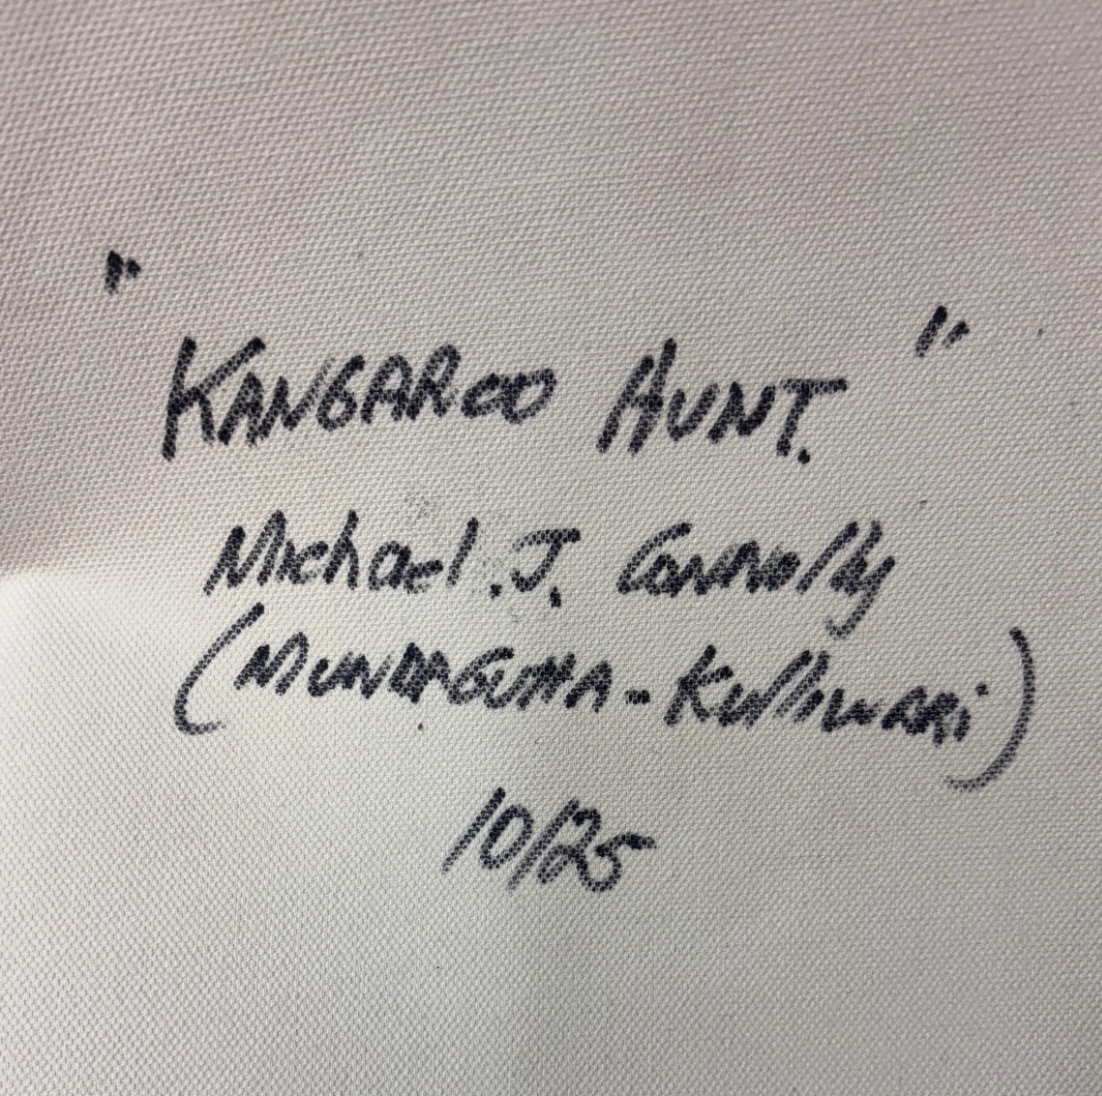 "KANGAROO HUNT."
Michael.J. Connolly
(MUNDAGUTTA-Kulliwari)
10/25